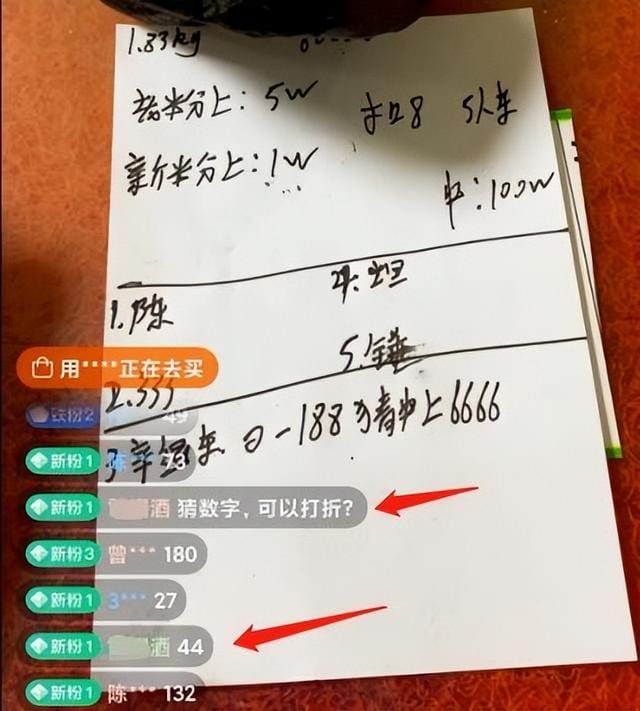 1.83kg
老粉分上：5W
新粉分上：1W
中：100W
1.陈
5.锤
2.333
0-188 猜中上6666
用****正在去买
铁粉2 49
新粉1 陈 73
新粉1 酒 猜数字，可以打折？
新粉3 曾*** 180
新粉1 3*** 27
新粉1 酒 44
新粉1 陈*** 132